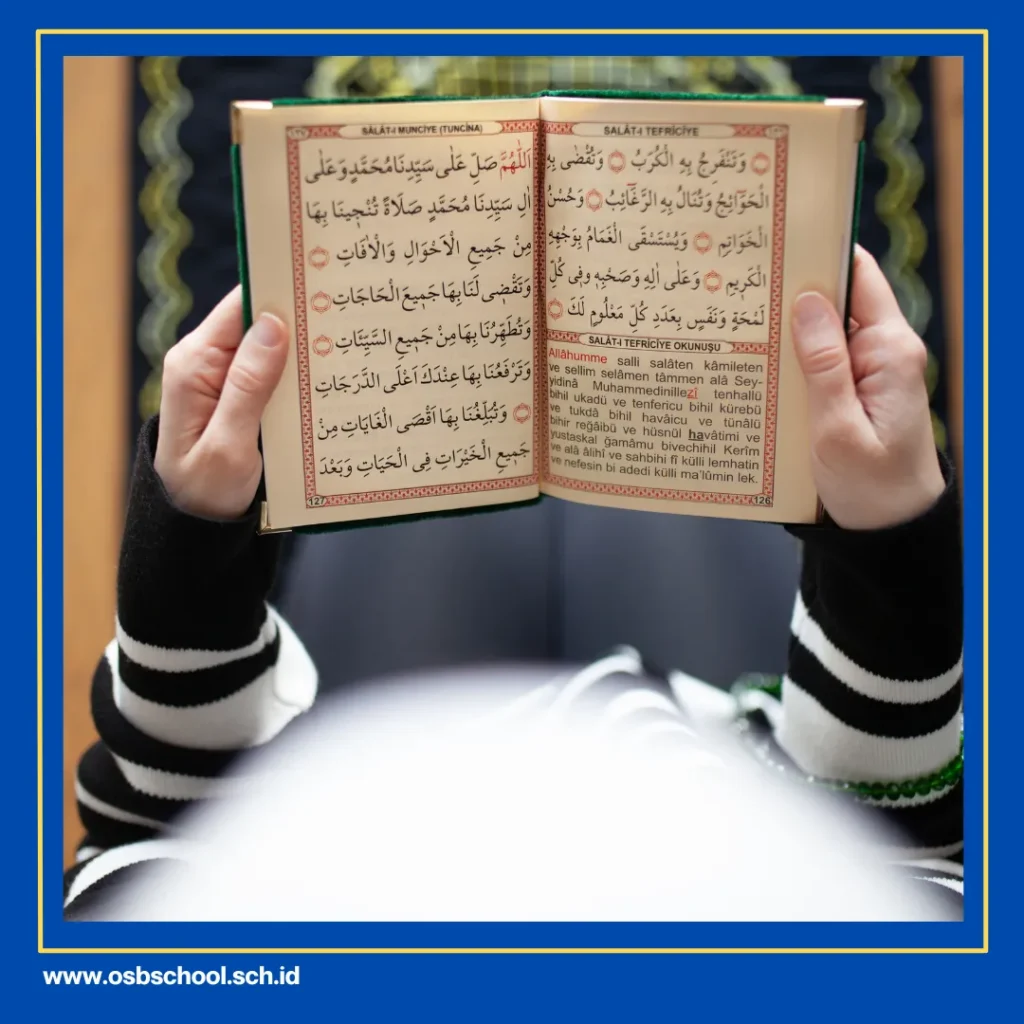 SALÂT-I TEFRİCİYE
وَتَنْفَرِجُ بِهِ الْكُرَبُ ۞ وَتُقْضٰى بِهِ
الْحَوَٓائِجُ وَتُنَالُ بِهِ الرَّغَٓائِبُ ۞ وَحُسْنُ
الْخَوَاتِمِ ۞ وَيُسْتَسْقَى الْغَمَامُ بِوَجْهِهِ
الْكَرِيمِ ۞ وَعَلٰى اٰلِهِ وَصَحْبِهِ وفِى كُلِّ
لَمْحَةٍ وَنَفَسٍ بِعَدَدِ كُلِّ مَعْلُومٍ لَكَ ۞
SALÂT-I TEFRİCİYE OKUNUŞU
Allâhumme salli salâten kâmileten
ve sellim selâmen tâmmen alâ Sey-
yidinâ Muhammedinillezî tenhallü
bihil ukadü ve tenfericu bihil kürebü
ve tukdâ bihil havâicu ve tünâlü
bihir reğâibü ve hüsnül havâtimi ve
yustaskal ğamâmu bivechihil Kerîm
ve alâ âlihî ve sahbihi fî külli lemhatin
ve nefesin bi adedi külli ma'lûmin lek.
126
SALÂT-I MUNCİYE (TUNCİNA)
اَللّٰهُمَّ صَلِّ عَلٰى سَيِّدِنَا مُحَمَّدٍ وَعَلٰى
اٰلِ سَيِّدِنَا مُحَمَّدٍ صَلَاةً تُنْجِينَا بِهَا
مِنْ جَمِيعِ الْاَحْوَالِ وَالْاٰفَاتِ ۞
وَتَقْضِى لَنَا بِهَا جَمِيعَ الْحَاجَاتِ ۞
وَتُطَهِّرُنَا بِهَا مِنْ جَمِيعِ السَّيِّئَاتِ ۞
وَتَرْفَعُنَا بِهَا عِنْدَكَ اَعْلَى الدَّرَجَاتِ
۞ وَتُبَلِّغُنَا بِهَا اَقْصَى الْغَايَاتِ مِنْ
جَمِيعِ الْخَيْرَاتِ فِى الْحَيَاتِ وَبَعْدَ
127
www.osbschool.sch.id